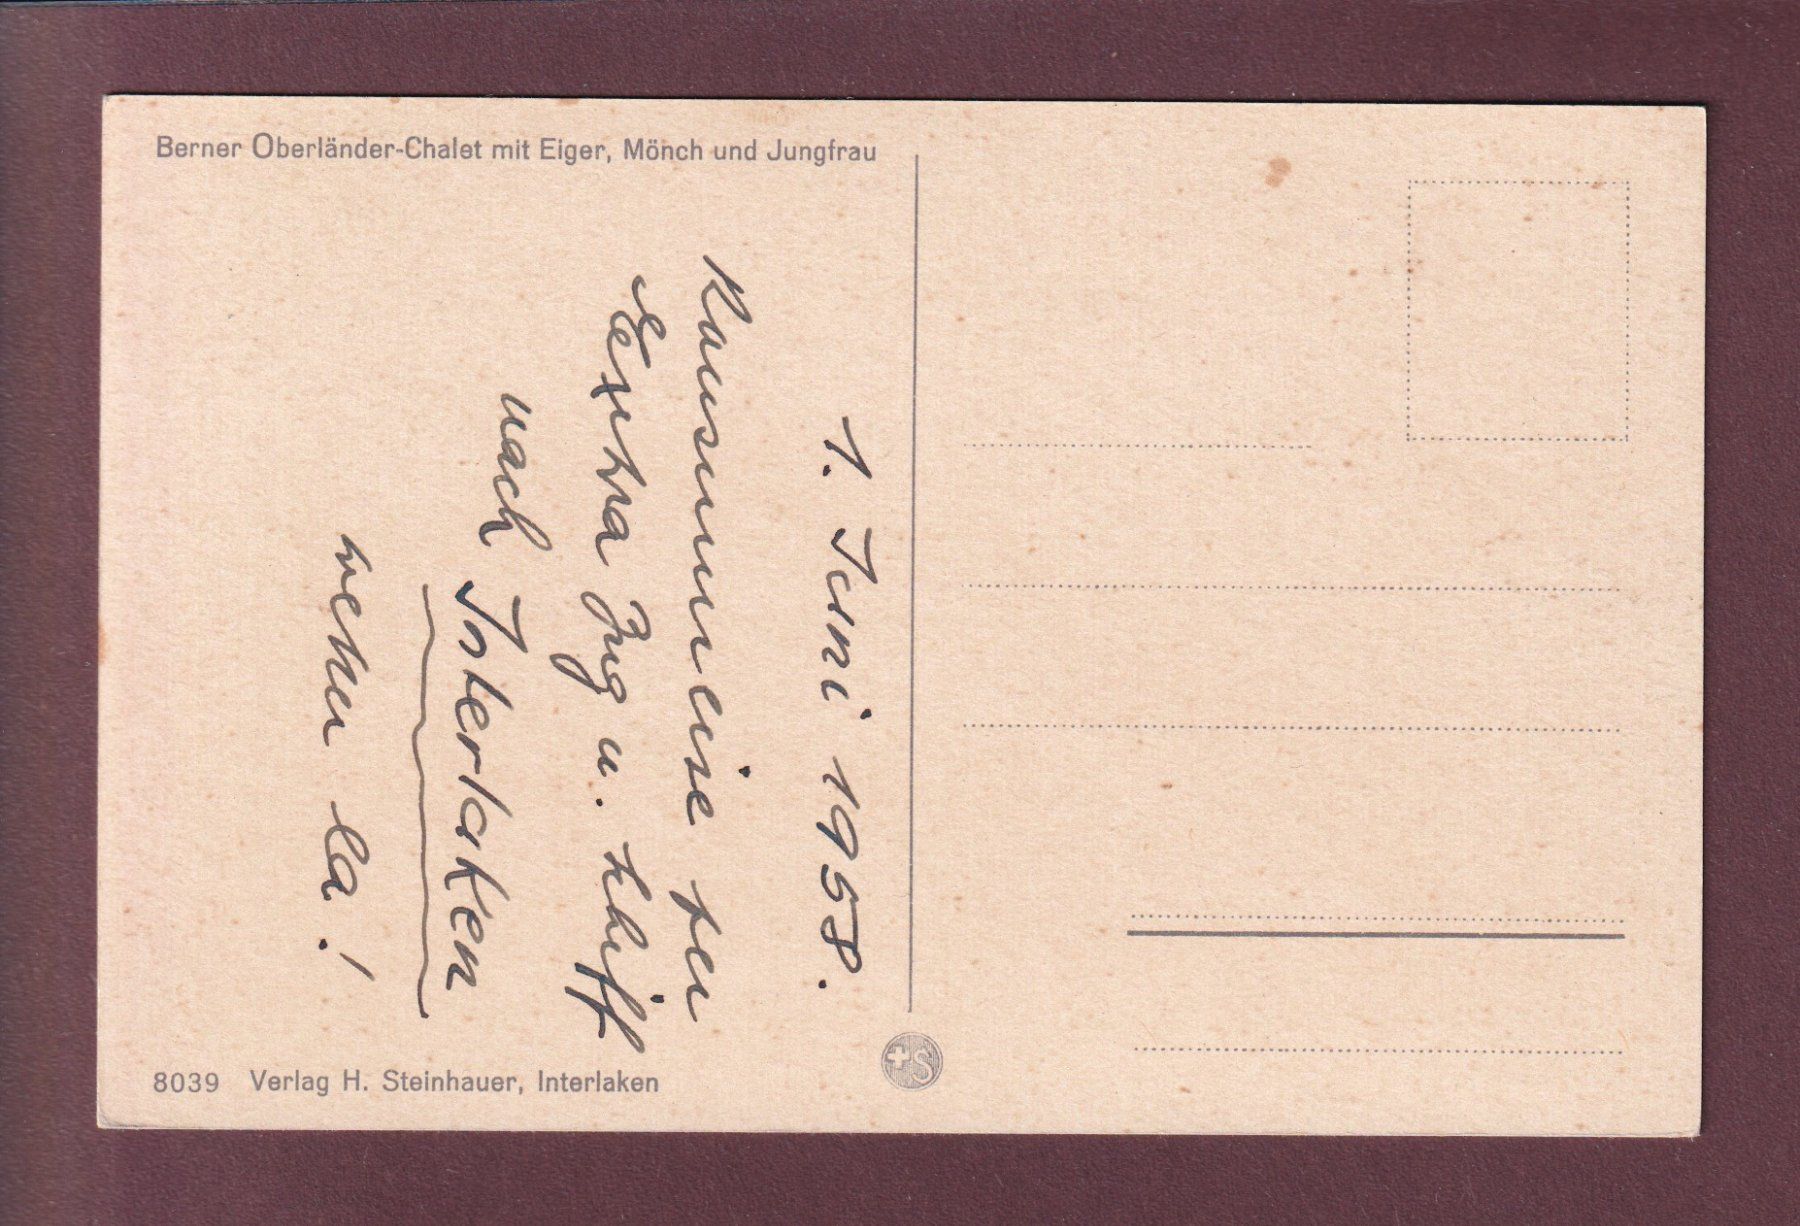 Berner Oberländer-Chalet mit Eiger, Mönch und Jungfrau
1. Juni 1958.
Extra Zug u. Schiff
nach Interlaken
8039 Verlag H. Steinhauer, Interlaken
+S